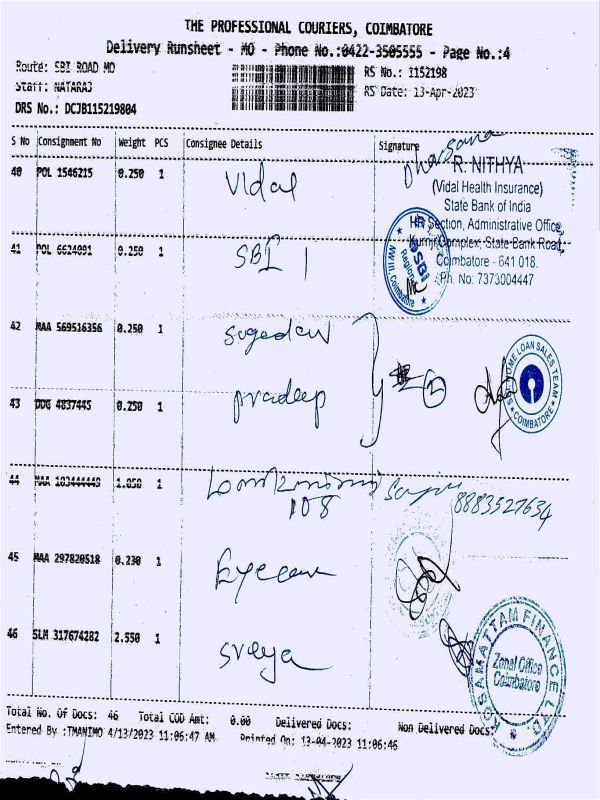 THE PROFESSIONAL COURIERS, COIMBATORE
Delivery Runsheet - MO - Phone No.:0422-3505555 - Page No.:4
Route: SBI ROAD MO
RS No.: 1152198
Staff: NATARAJ
RS Date: 13-Apr-2023
DRS No.: DCJB115219804
S No Consignment No Weight PCS Consignee Details Signature
Dharsana
40 POL 1546215 0.250 1 Vidal
R. NITHYA
(Vidal Health Insurance)
State Bank of India
HR Section, Administrative Office,
Kurinji Complex, State Bank Road,
Coimbatore - 641 018.
Ph. No: 7373004447
SBI
Coimbatore
41 POL 6624091 0.250 1 SBI
42 MAA 569516356 0.250 1
HOME LOAN SALES TEAM
COIMBATORE
43 DDG 4837445 0.250 1 pradeep
44 MAA 103444449 1.050 1
108
8883527634
45 MAA 297820518 0.230 1 Eyecare
46 SLM 317674282 2.550 1 sreya
KOSAMATTAM FINANCE LTD.
Zonal Office
Coimbatore
Total No. Of Docs: 46 Total COD Amt: 0.00 Delivered Docs: Non Delivered Docs:
Entered By :TMANIMO 4/13/2023 11:06:47 AM Printed On: 13-04-2023 11:06:46